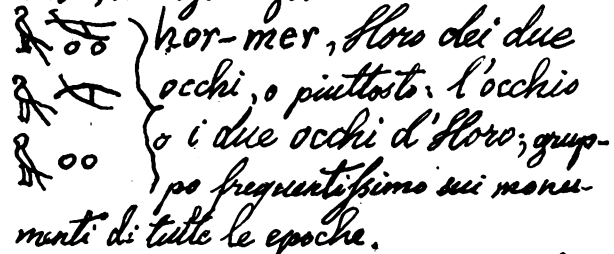 hor-mer, Horo dei due
occhi, o piuttosto: l'occhio
o i due occhi d'Horo; grup-
po frequentissimo sui monu-
menti di tutte le epoche.